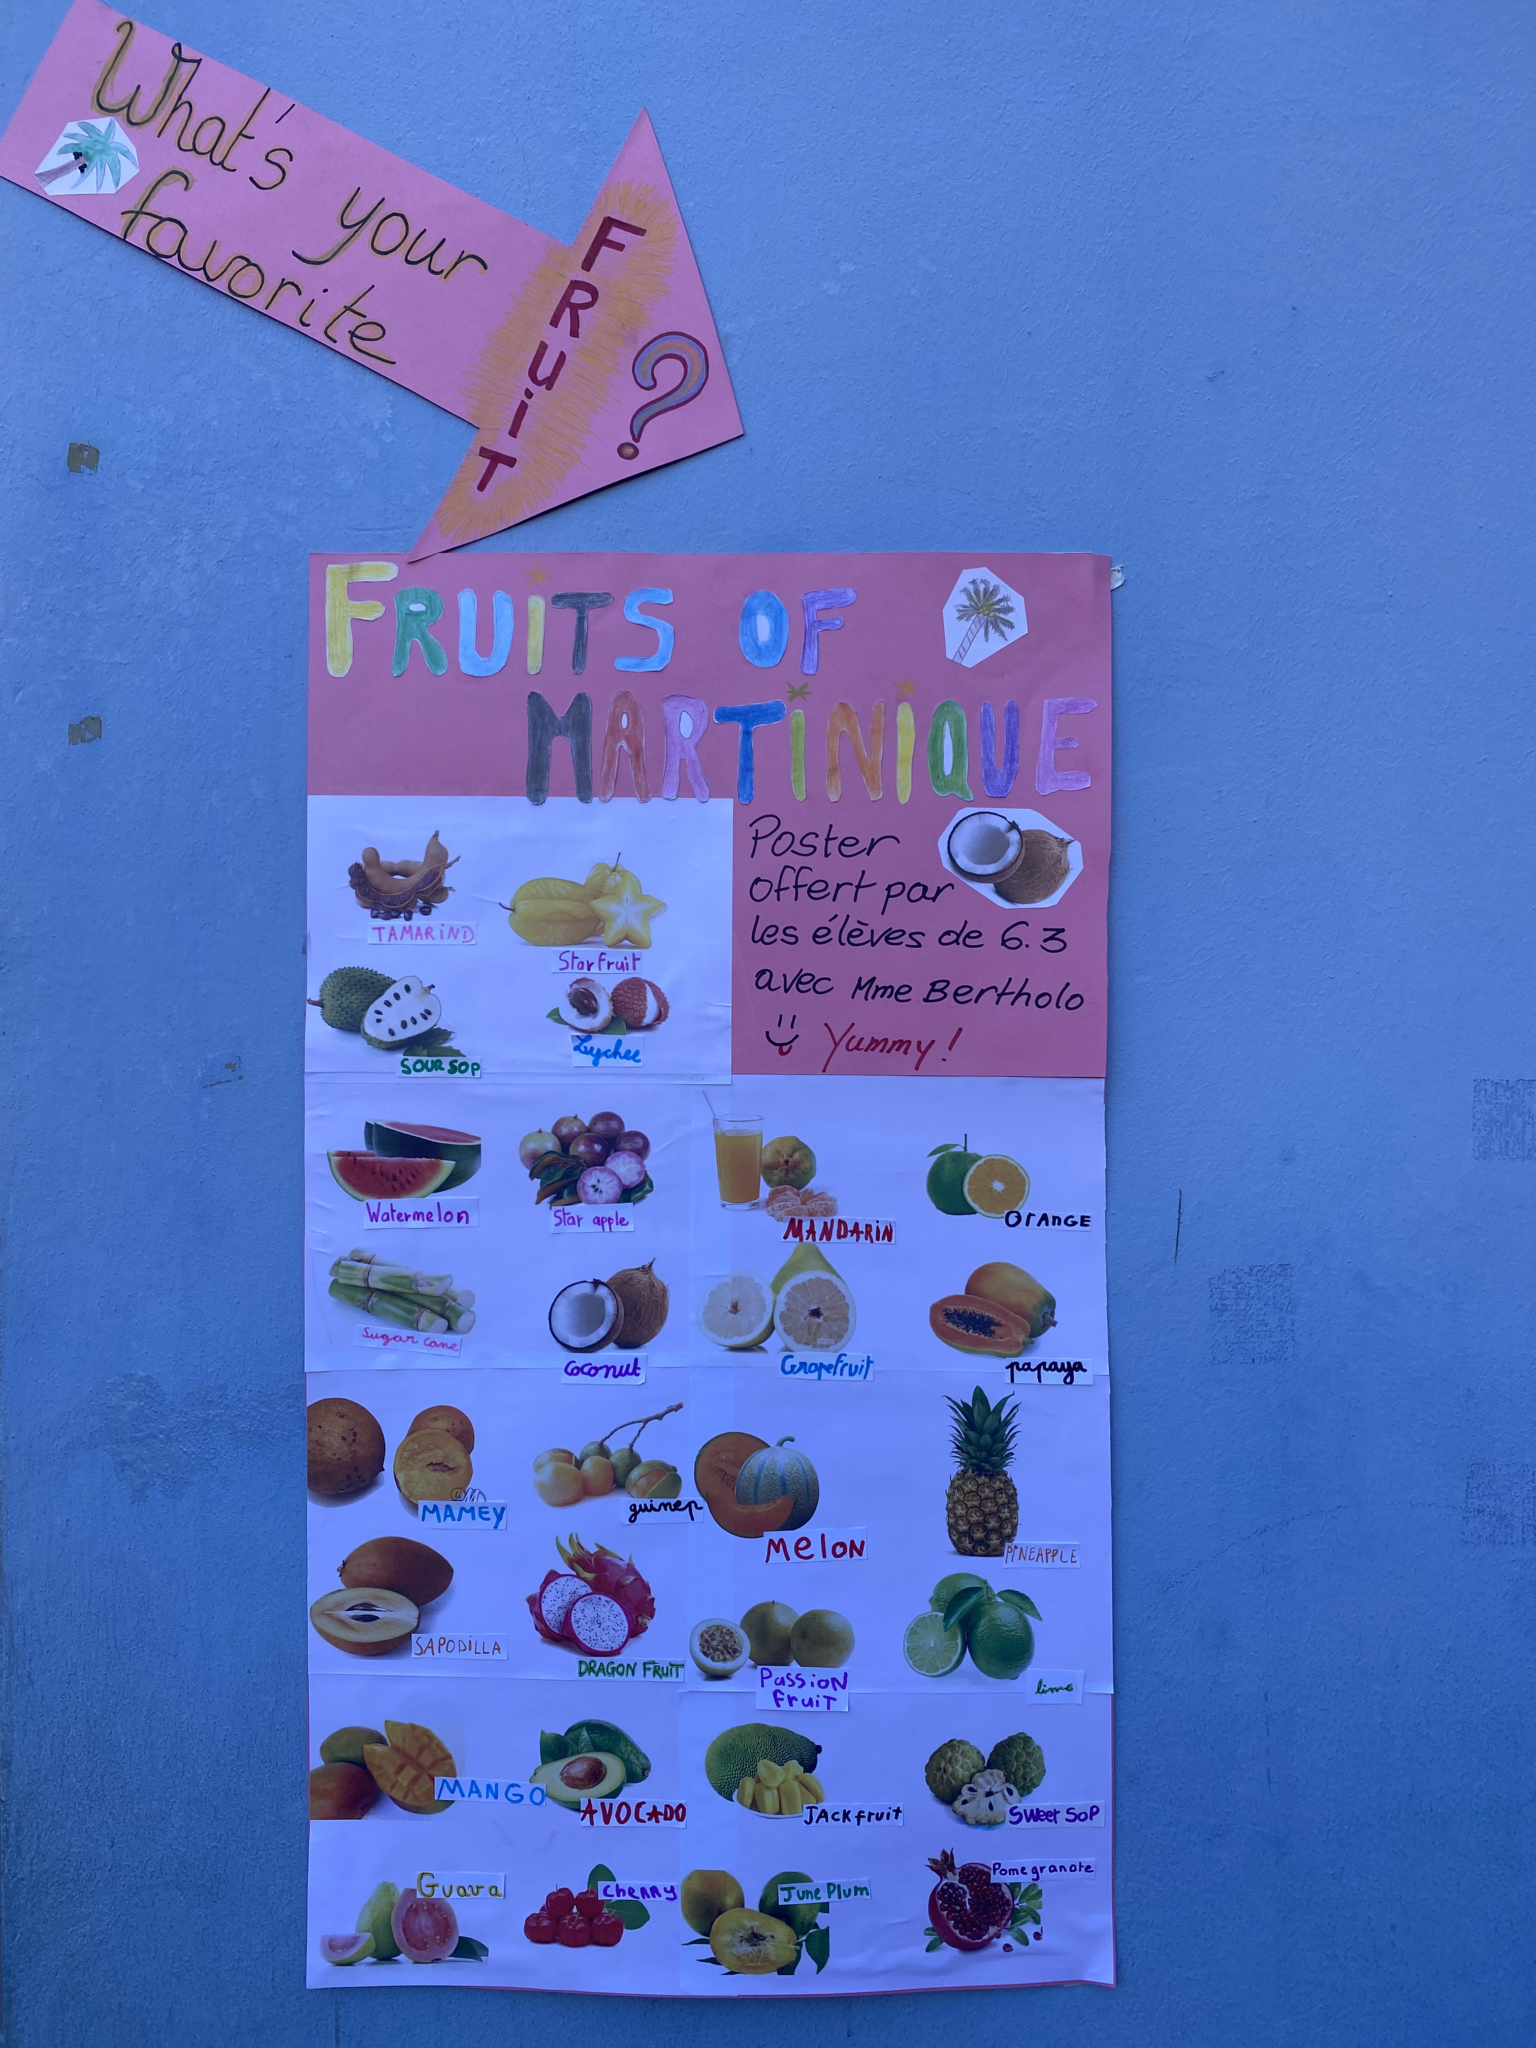 What's your
favorite
FRUiT
?
FRUiTS OF
MARTiNiQUE
Poster
offert par
les élèves de 6.3
avec Mme Bertholo
Yummy!
TAMARiND
Starfruit
SOURSOP
Lychee
Watermelon
Star apple
MANDARiN
ORANGE
Sugar cane
coconut
Grapefruit
papaya
MAMEY
guinep
MeLON
PiNEAPPLE
SAPODiLLA
DRAGON FRUiT
PassioN
fruiT
lime
MANGO
AVOCADO
JACKfruit
Sweet SoP
Guava
CheRRy
June Plum
Pomegranate